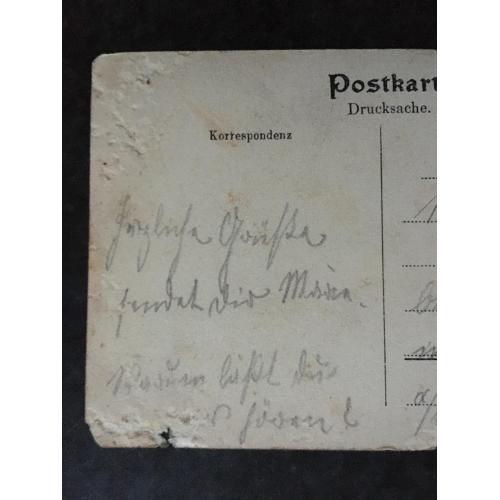 Postkart
Drucksache.
Korrespondenz
Herzliche Grüße
sendet Dir Marie.
Warum läßt Du
hören?